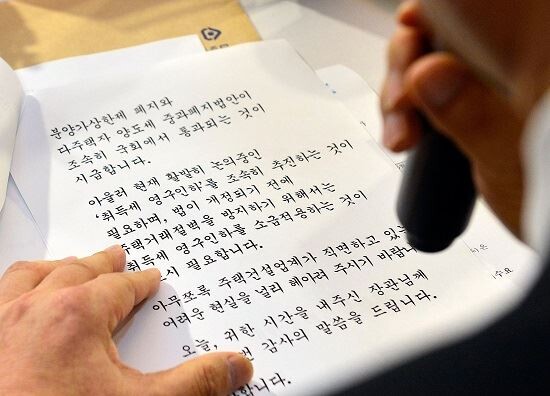 분양가상한제 폐지와
다주택자 양도세 중과폐지법안이
조속히 국회에서 통과되는 것이
시급합니다.
아울러 현재 활발히 논의중인
'취득세 영구인하'를 조속히 추진하는 것이
필요하며, 법이 개정되기 전에
주택거래절벽을 방지하기 위해서는
취득세 영구인하를 소급적용하는 것이
필요합니다.
아무쪼록 주택건설업계가 직면하고 있는
어려운 현실을 널리 헤아려 주시기 바랍니다
오늘, 귀한 시간을 내주신 장관님께
감사의 말씀을 드립니다.